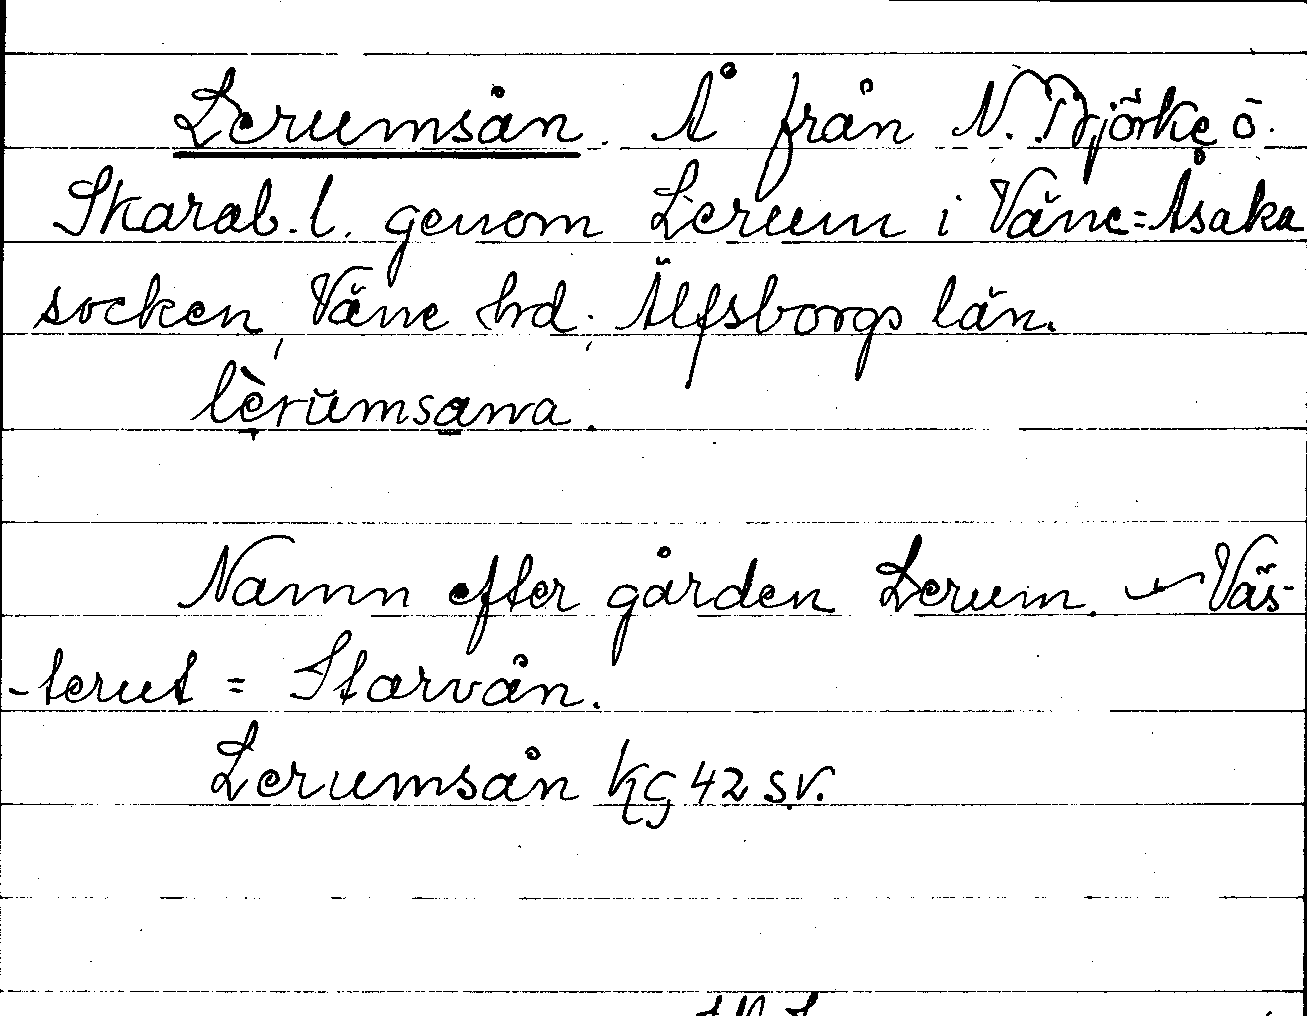 Lerumsån. Å från N. Björke ö.
Skarab. l. genom Lerum i Väne=Åsaka
socken, Väne hd. Älfsborgs län.
lèrumsana.
Namn efter gården Lerum. Väs-
-terut = Starvån.
Lerumsån KG 42 SV.